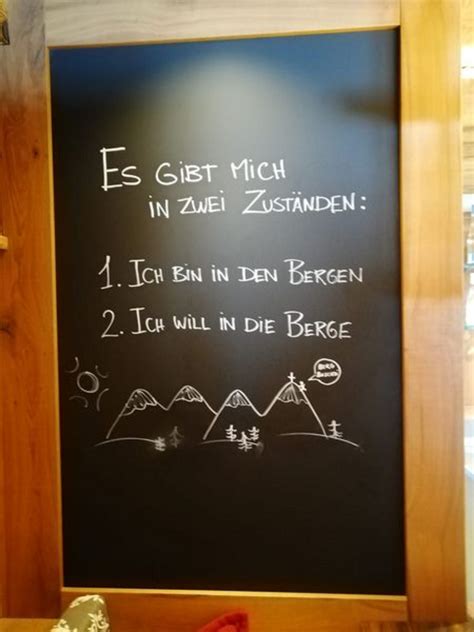 Es gibt mich
in zwei Zuständen:
1. Ich bin in den Bergen
2. Ich will in die Berge